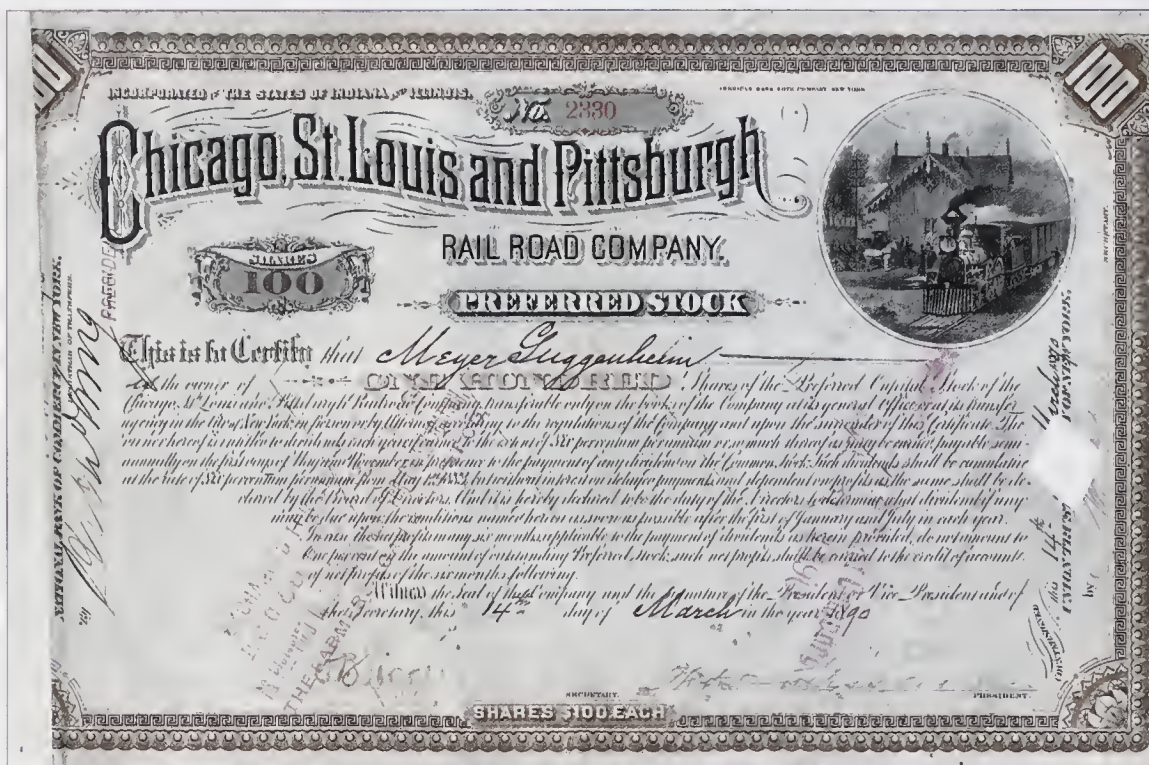 100
100
INCORPORATED IN THE STATES OF INDIANA AND ILLINOIS.
No. 2330
AMERICAN BANK NOTE COMPANY NEW YORK
Chicago, St. Louis and Pittsburgh
RAIL ROAD COMPANY.
SHARES
100
PREFERRED STOCK
This is to Certify that Meyer Guggenheim
is the owner of ONE HUNDRED Shares of the Preferred Capital Stock of the
Chicago, St. Louis and Pittsburgh Railroad Company, transferable only on the books of the Company at its general Office or at its transfer
agency in the City of New York in person or by Attorney according to the regulations of the Company and upon the surrender of this Certificate. The
owner hereof is entitled to dividends each year to the extent of Six per centum per annum or so much thereof as may be earned payable semi
annually on the first days of May and November in preference to the payment of any dividend on the Common Stock. Such dividends shall be cumulative
at the rate of Six per centum per annum from May 1st but without interest on delayed payments and dependent on profits as the same shall be de-
clared by the Board of Directors. And it is hereby declared to be the duty of the Directors to determine what dividend if any
may be due upon the conditions named hereon as soon as possible after the first of January and July in each year.
In case the net profits in any six months applicable to the payment of dividends as herein provided, do not amount to
One per cent on the amount of outstanding Preferred Stock, such net profits shall be carried to the credit of accounts
of net profits of the six months following.
Witness the Seal of the Company and the Signature of the President or Vice President and of
the Secretary, this 14th day of March in the year 1890
SECRETARY.
PRESIDENT.
SHARES $100 EACH
NATIONAL BANK OF COMMERCE IN NEW YORK.
REGISTRAR OF TRANSFERS.
by
this 14th
March 1890
by